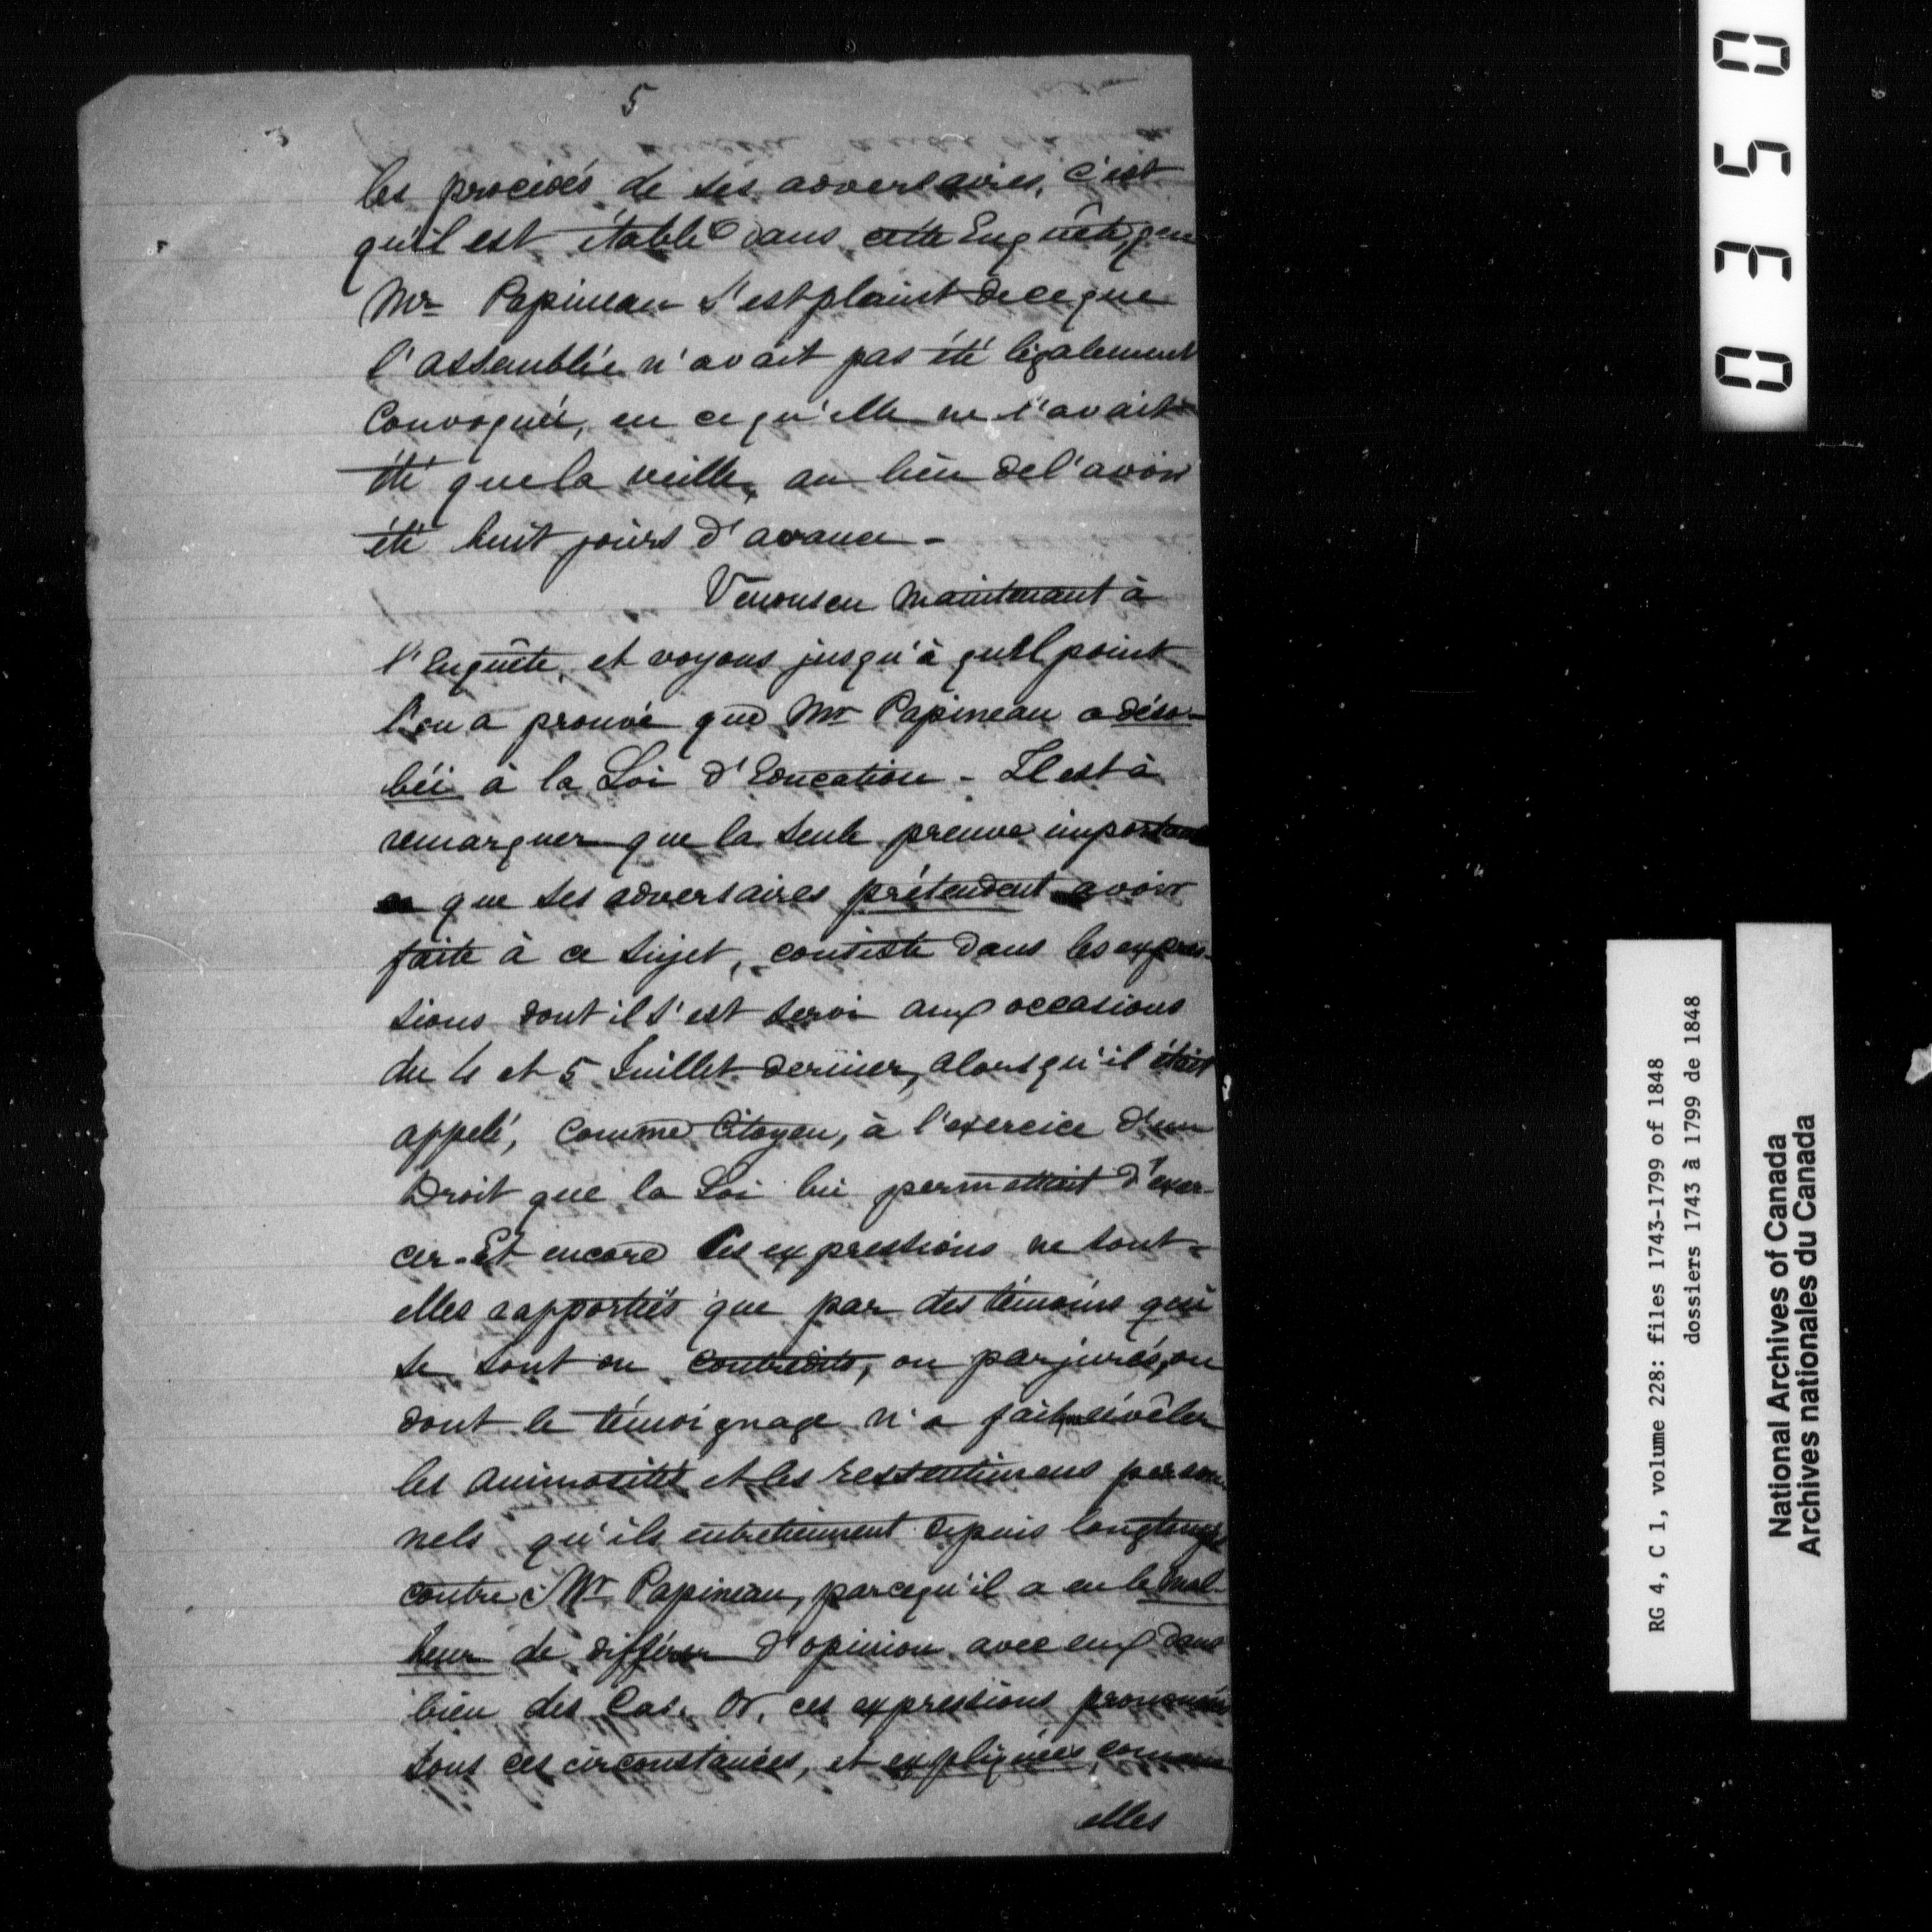 5
les procédés de ses adversaires, c'est
qu'il est établi dans cette Enquête que
Mr Papineau s'est plaint de ce que
l'assemblée n'avait pas été légalement
Convoquée, en ce qu'elle ne l'avait
été que la veille, au lieu de l'avoir
été huit jours d'avance -
Venons en maintenant à
l'Enquête, et voyons jusqu'à quel point
l'on a prouvé que Mr Papineau a déso-
béi à la Loi d'Education - Il est à
remarquer que la seule preuve importante
que ses adversaires prétendent avoir
faite à ce sujet, consiste dans les expres-
sions dont il s'est servi aux occasions
du 4 et 5 Juillet dernier, alors qu'il était
appelé, comme Citoyen, à l'exercice d'un
Droit que la Loi lui permettait d'exer-
cer. Et encore ces expressions ne sont-
elles rapportées que par des témoins qui
se sont ou contredits, ou parjurés, ou
dont le témoignage n'a fait que révéler
les animosités et les ressentimens person-
nels qu'ils entretiennent depuis longtemps
contre Mr Papineau, parcequ'il a eu le mal-
heur de différer d'opinion avec eux dans
bien des Cas. Or, ces expressions prononcées
sous ces circonstances, et expliquées, comme
elles
0350
RG 4, C 1, volume 228: files 1743-1799 of 1848
dossiers 1743 à 1799 de 1848
National Archives of Canada
Archives nationales du Canada